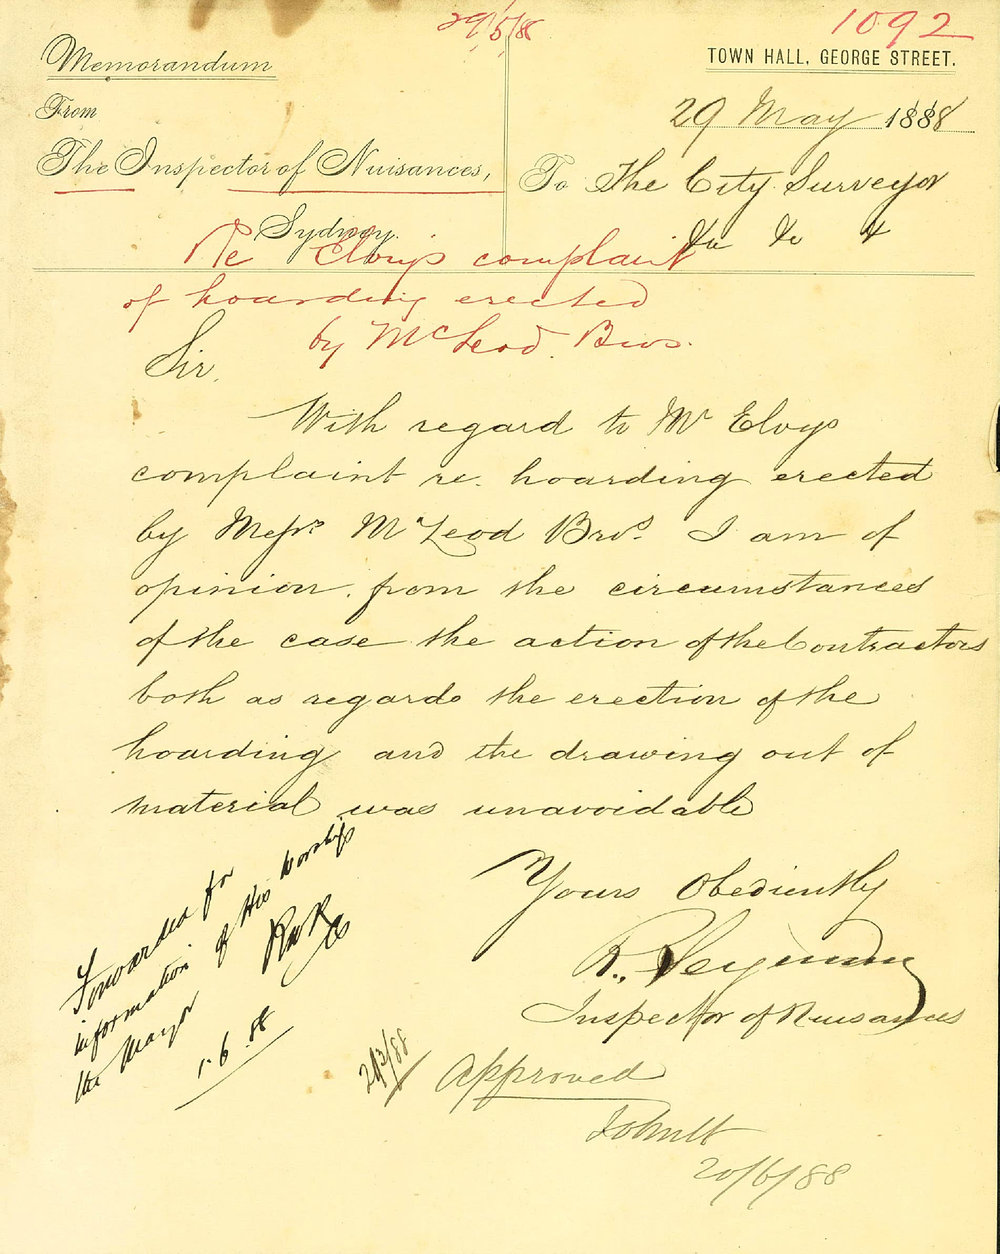 29/5/88
1092
Memorandum
TOWN HALL, GEORGE STREET.
From
29 May 1888
The Inspector of Nuisances,
To The City Surveyor
Sydney.
&c &c &
Re Elvy's complaint
of hoarding erected
by McLeod. Bros.
Sir,
With regard to Mr Elvys
complaint re. hoarding erected
by Messrs McLeod Bros. I am of
opinion. from the circumstances
of the case the action of the Contractors
both as regards the erection of the
hoarding and the drawing out of
material was unavoidable
Yours Obediently
R. Seymour
Inspector of Nuisances
Forwarded for
information of His Worship
the Mayor
1.6.88
Approved
20/6/88